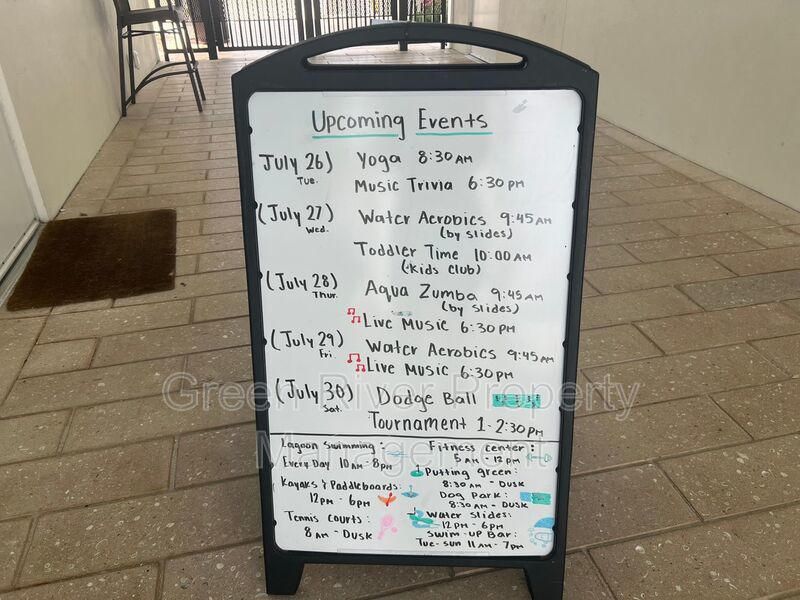 Upcoming Events
July 26) Yoga 8:30 AM
Tue.
Music Trivia 6:30 PM
(July 27) Water Aerobics 9:45 AM
Wed. (by slides)
Toddler Time 10:00 AM
(kids club)
(July 28) Aqua Zumba 9:45 AM
Thur. (by slides)
Live Music 6:30 PM
(July 29) Water Aerobics 9:45 AM
Fri.
Live Music 6:30 PM
(July 30) Dodge Ball
Sat.
Tournament 1-2:30 PM
Lagoon Swimming:
Every Day 10 AM - 8 PM
Kayaks & Paddleboards:
12 PM - 6 PM
Tennis Courts:
8 AM - Dusk
Fitness center:
5 AM - 12 PM
Putting green:
8:30 AM - Dusk
Dog Park:
8:30 AM - Dusk
Water Slides:
12 PM - 6 PM
Swim-up Bar:
Tue-Sun 11 AM - 7 PM
Green River Property
Management